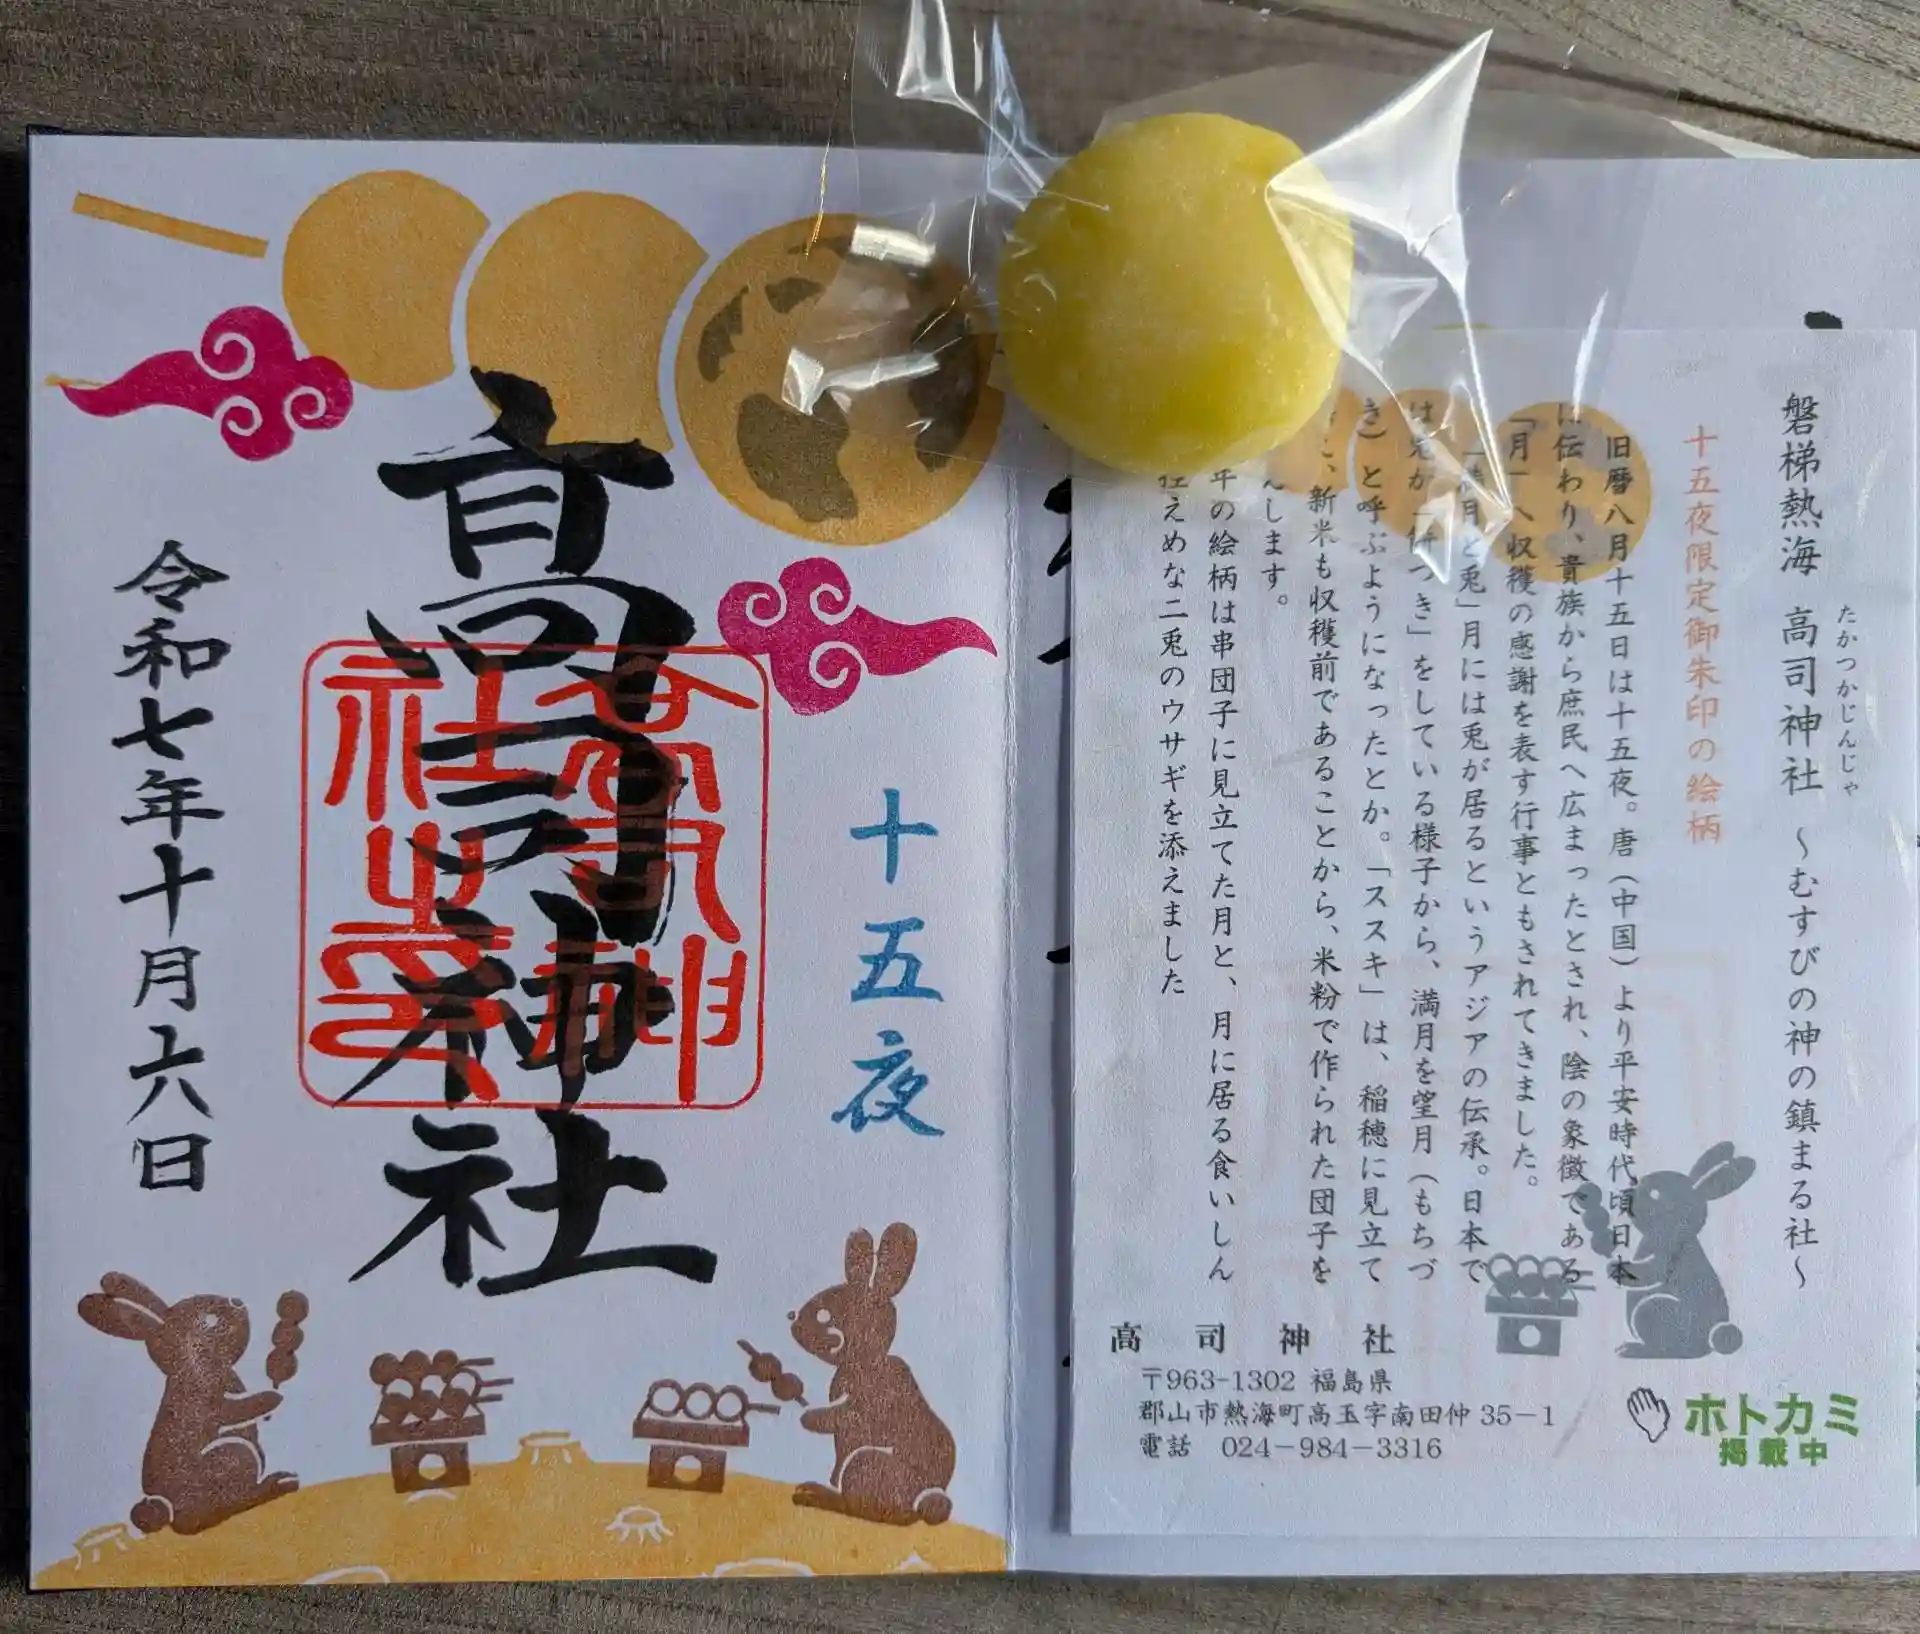 十五夜
高司神社
高司神社之印
令和七年十月六日
磐梯熱海 高司神社 ～むすびの神の鎮まる社～
たかつかじんじゃ
十五夜限定御朱印の絵柄
旧暦八月十五日は十五夜。唐（中国）より平安時代頃日本
に伝わり、貴族から庶民へ広まったとされ、陰の象徴である
「月」へ収穫の感謝を表す行事ともされてきました。
「満月と兎」月には兎が居るというアジアの伝承。日本で
は兎が「餅つき」をしている様子から、満月を望月（もちづ
き）と呼ぶようになったとか。「ススキ」は、稲穂に見立て
、新米も収穫前であることから、米粉で作られた団子を
します。
年の絵柄は串団子に見立てた月と、月に居る食いしん
控えめな二兎のウサギを添えました
高司神社
〒963-1302 福島県
郡山市熱海町高玉字南田仲 35－1
電話 024－984－3316
ホトカミ
掲載中